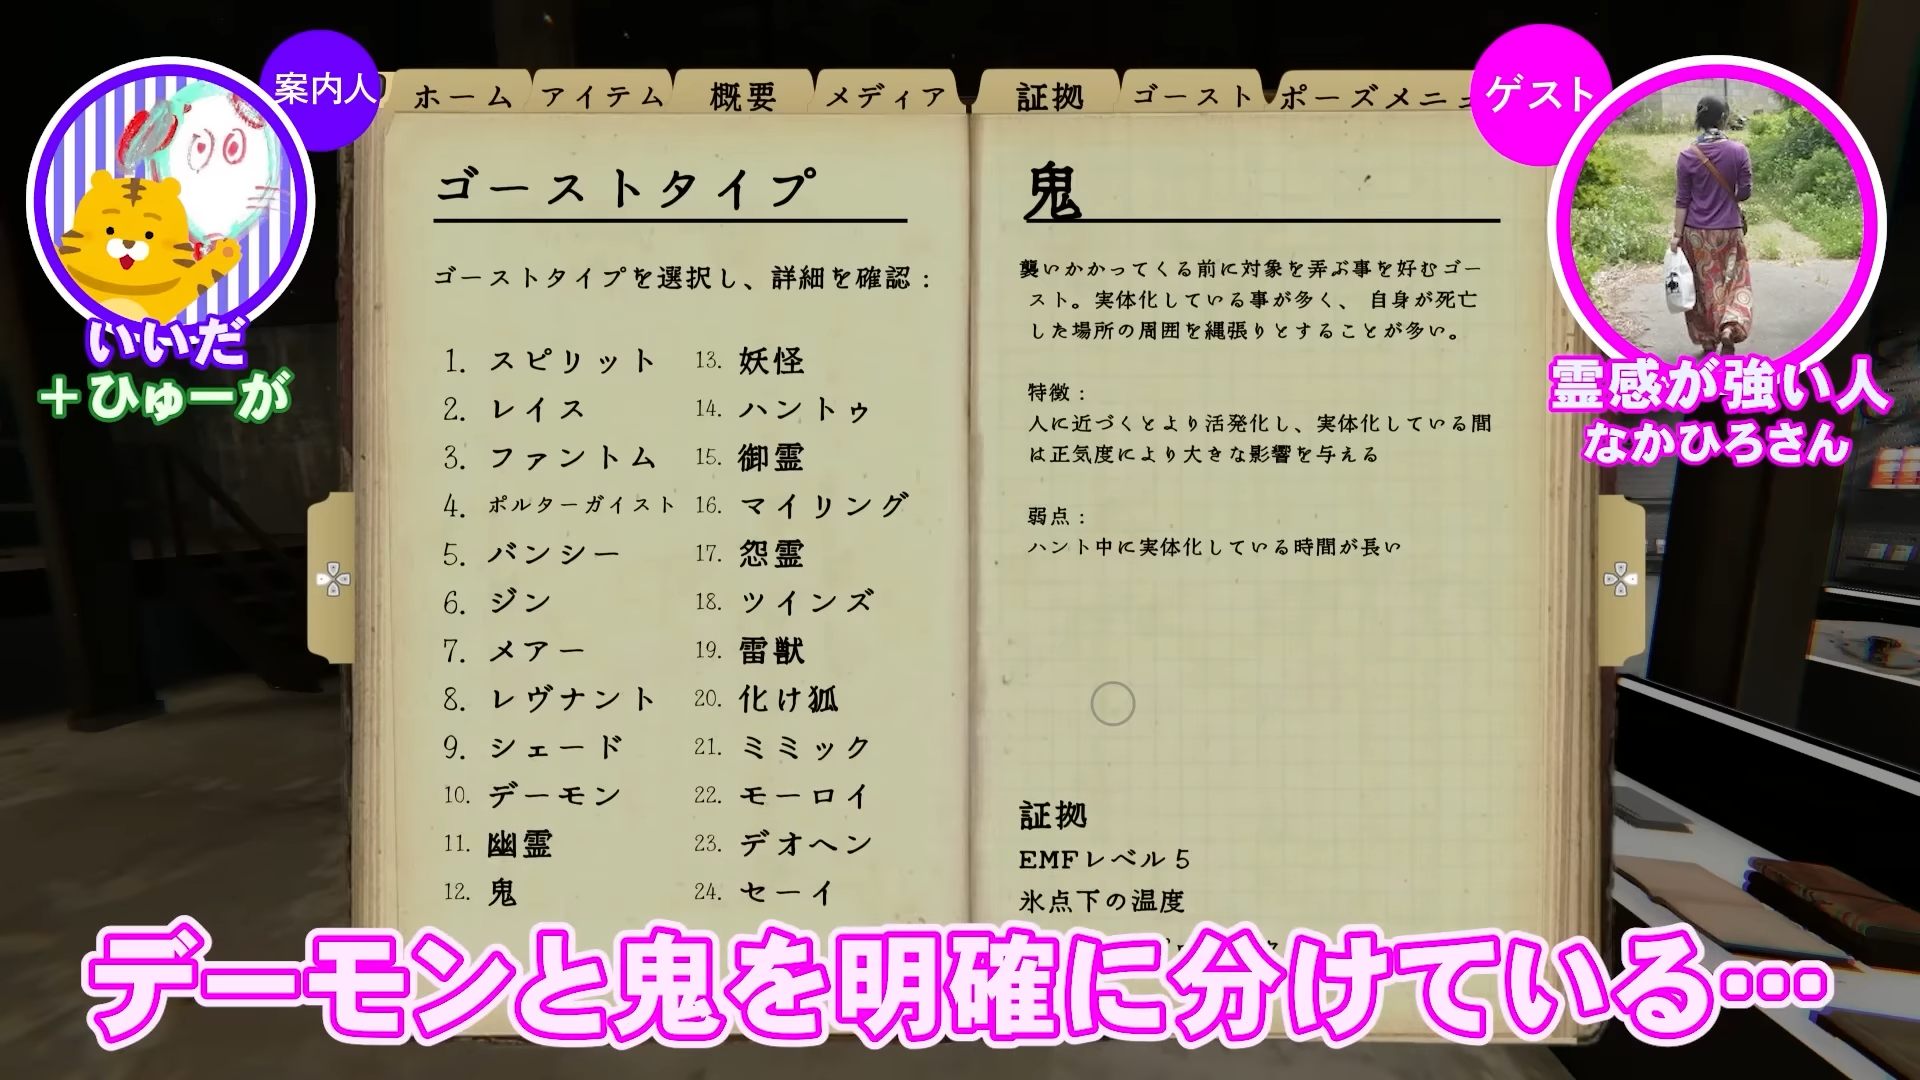 案内人
いいだ
＋ひゅーが
ゲスト
霊感が強い人
なかひろさん
ホーム
アイテム
概要
メディア
証拠
ゴースト
ポーズメニュ
ゴーストタイプ
ゴーストタイプを選択し、詳細を確認：
1. スピリット
2. レイス
3. ファントム
4. ポルターガイスト
5. バンシー
6. ジン
7. メアー
8. レヴナント
9. シェード
10. デーモン
11. 幽霊
12. 鬼
13. 妖怪
14. ハントゥ
15. 御霊
16. マイリング
17. 怨霊
18. ツインズ
19. 雷獣
20. 化け狐
21. ミミック
22. モーロイ
23. デオヘン
24. セーイ
鬼
襲いかかってくる前に対象を弄ぶ事を好むゴー
スト。実体化している事が多く、 自身が死亡
した場所の周囲を縄張りとすることが多い。
特徴：
人に近づくとより活発化し、実体化している間
は正気度により大きな影響を与える
弱点：
ハント中に実体化している時間が長い
証拠
EMFレベル５
氷点下の温度
デーモンと鬼を明確に分けている…